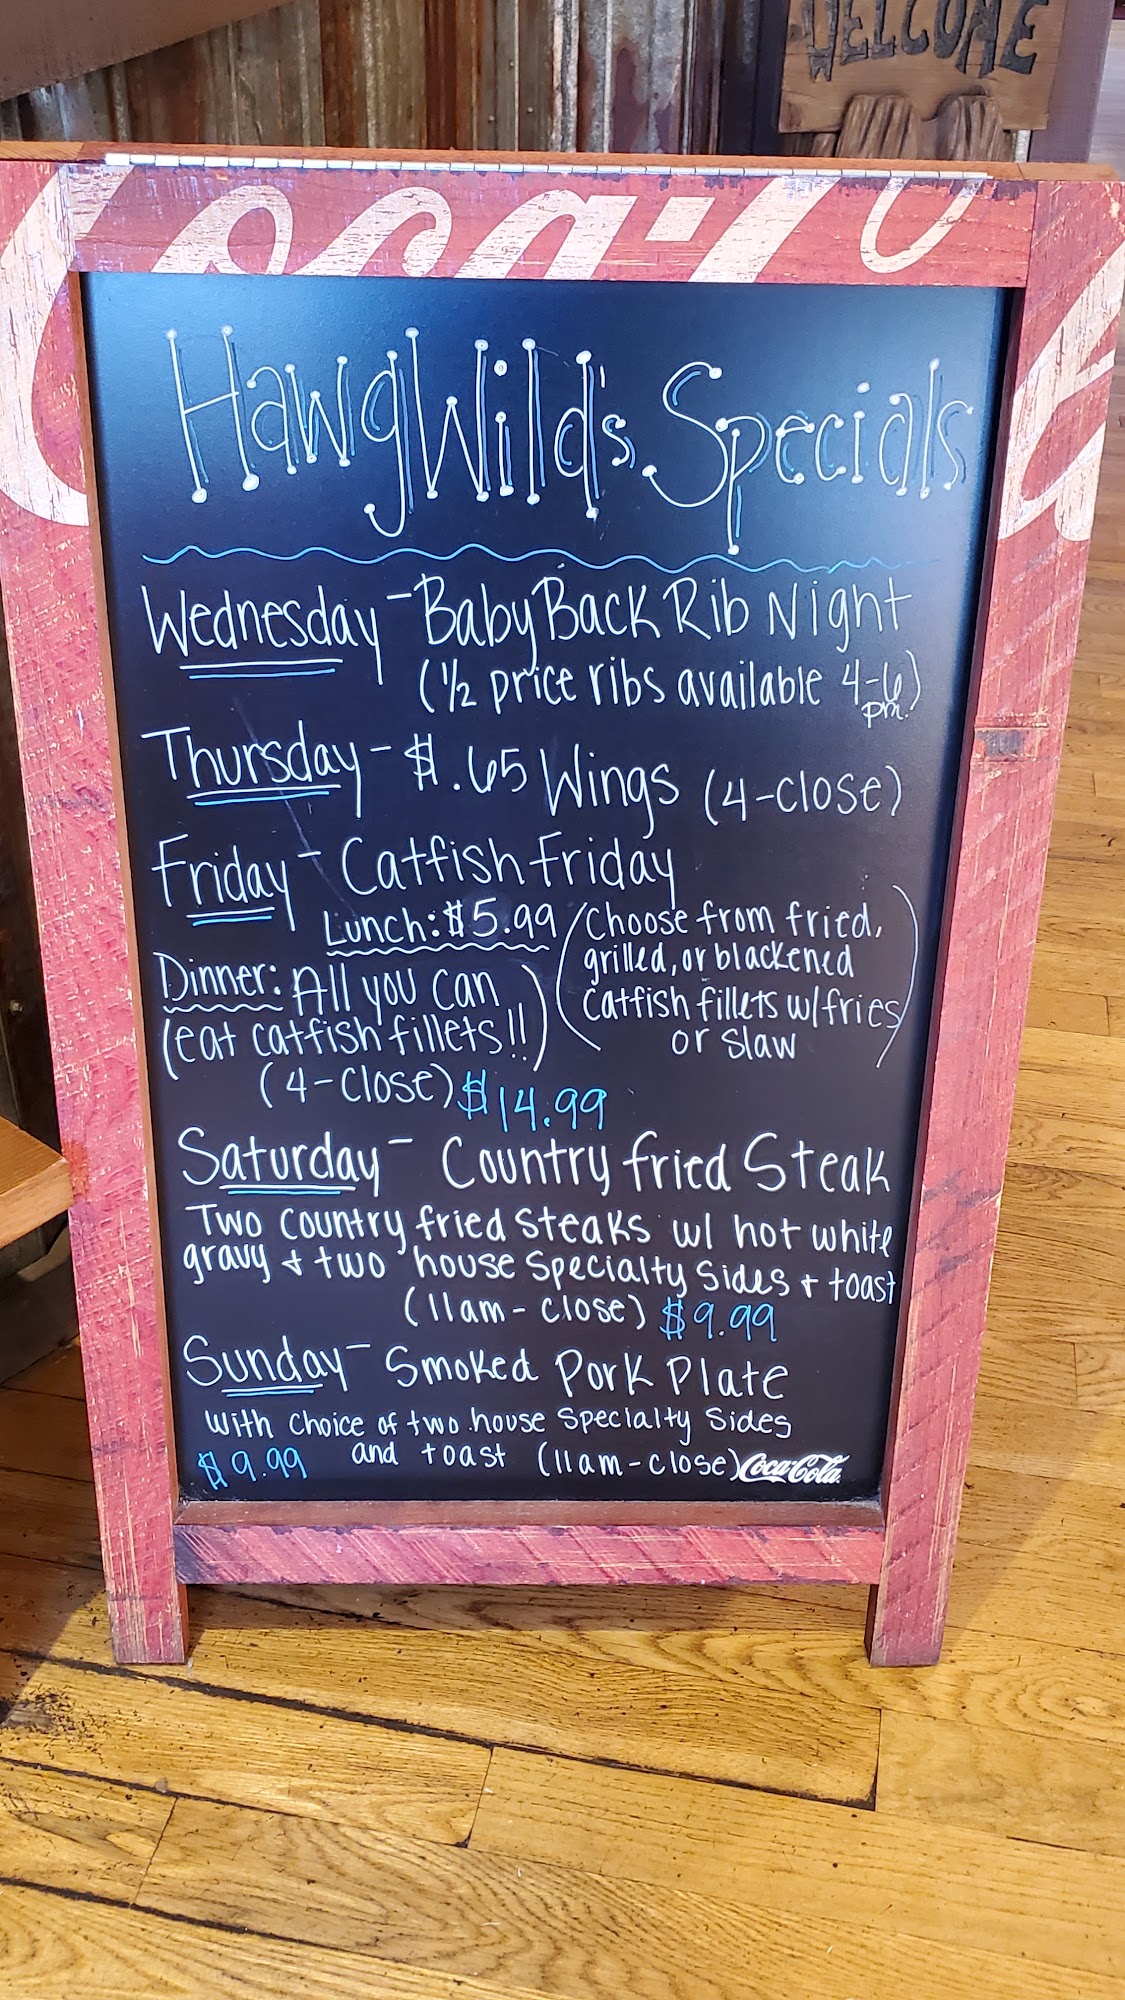 WELCOME
Coca-Co
HawgWild's Specials
Wednesday - Baby Back Rib Night
(1/2 price ribs available 4-6 pm.)
Thursday - $.65 Wings (4-close)
Friday - Catfish Friday
Lunch: $5.99 (Choose from fried,
grilled, or blackened
catfish fillets w/fries
or slaw)
Dinner: All you can
(eat catfish fillets!!)
(4-close) $14.99
Saturday - Country fried Steak
Two country fried steaks w/ hot white
gravy + two house specialty sides + toast
(11am-close) $9.99
Sunday - Smoked Pork Plate
with choice of two house specialty sides
$9.99 and toast (11am-close) Coca-Cola